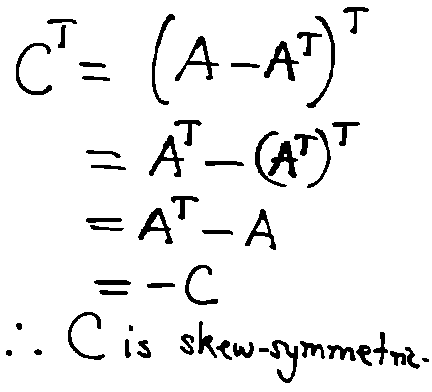 Cᵀ = (A − Aᵀ)ᵀ
= Aᵀ − (Aᵀ)ᵀ
= Aᵀ − A
= −C
∴ C is skew-symmetric.